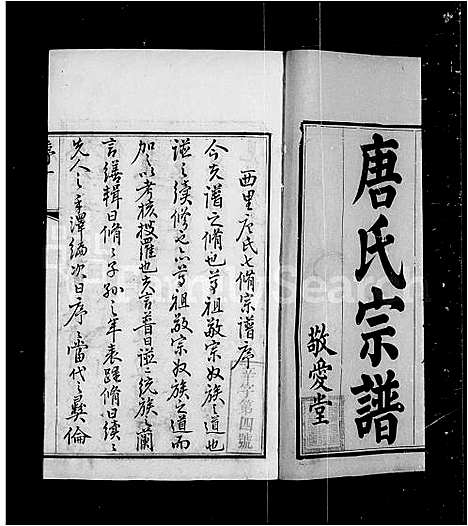 唐氏宗譜
敬愛堂
西里唐氏七脩宗譜序
字第四號
今夫譜之脩也尊祖敬宗收族之道也
譜之續修也亦尊祖敬宗收族之道而
加之以考核搜羅也夫言普曰譜統族之蘭
言繕輯曰脩子孫之年表踵脩曰續
先人之手澤編次曰序當代之彝倫
序一
FamilySearch